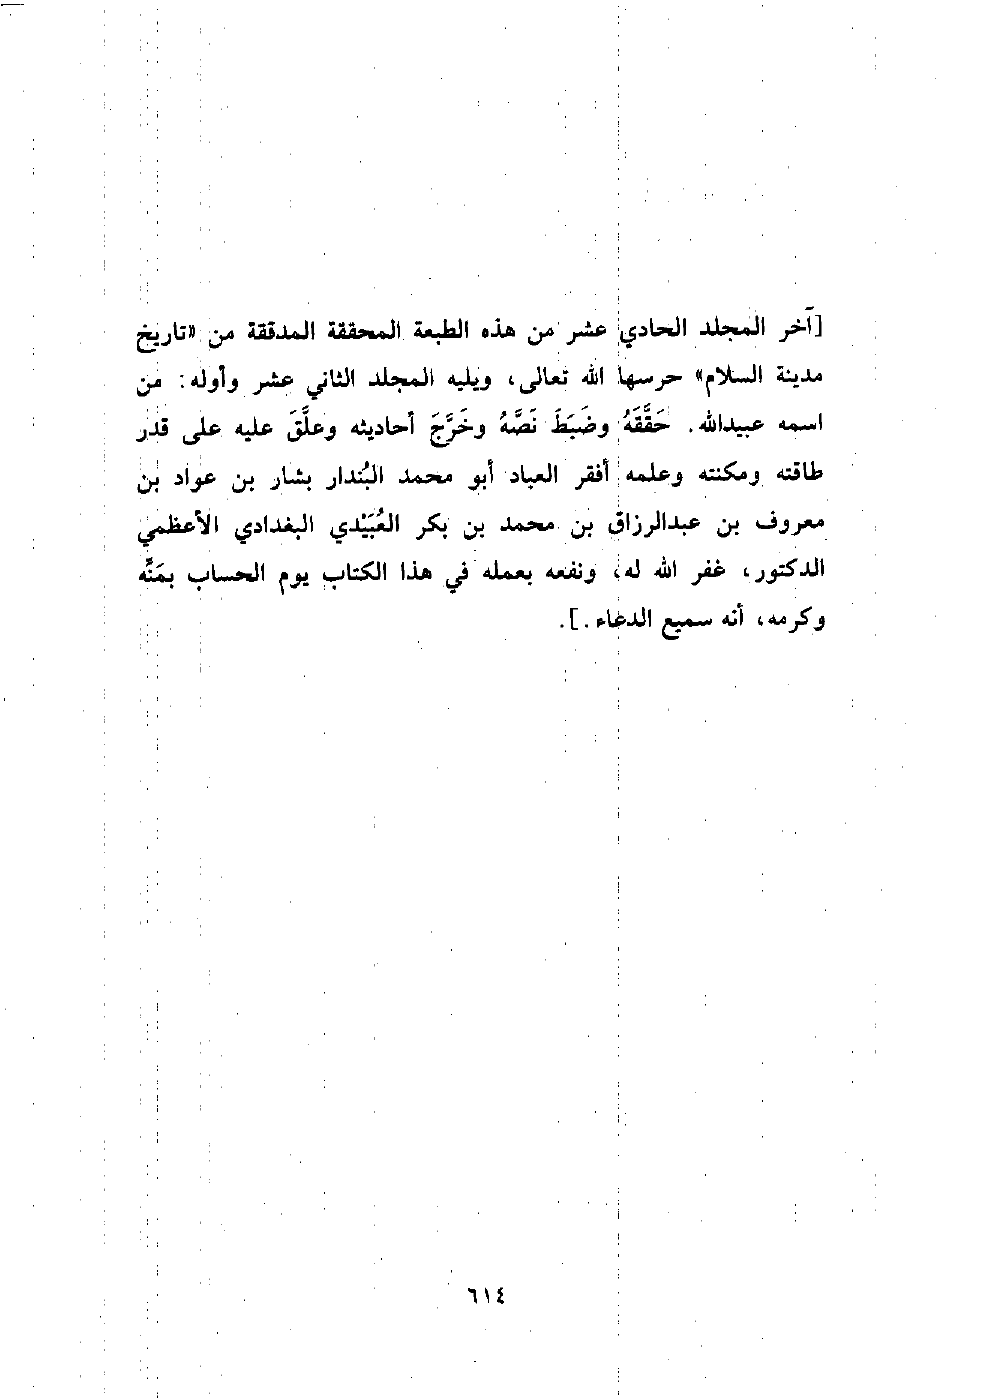 [آخر المجلد الحادي عشر من هذه الطبعة المحققة المدققة من «تاريخ
مدينة السلام» حرسها الله تعالى، ويليه المجلد الثاني عشر وأوله: من
اسمه عبيدالله. حَقَّقَهُ وضَبَطَ نَصَّهُ وخَرَّجَ أحاديثه وعلَّقَ عليه على قدر
طاقته ومكنته وعلمه أفقر العباد أبو محمد البُندار بشار بن عواد بن
معروف بن عبدالرزاق بن محمد بن بكر العُبَيْدي البغدادي الأعظمي
الدكتور، غفر الله له، ونفعه بعمله في هذا الكتاب يوم الحساب بمَنِّه
وكرمه، أنه سميع الدعاء.].
٦١٤